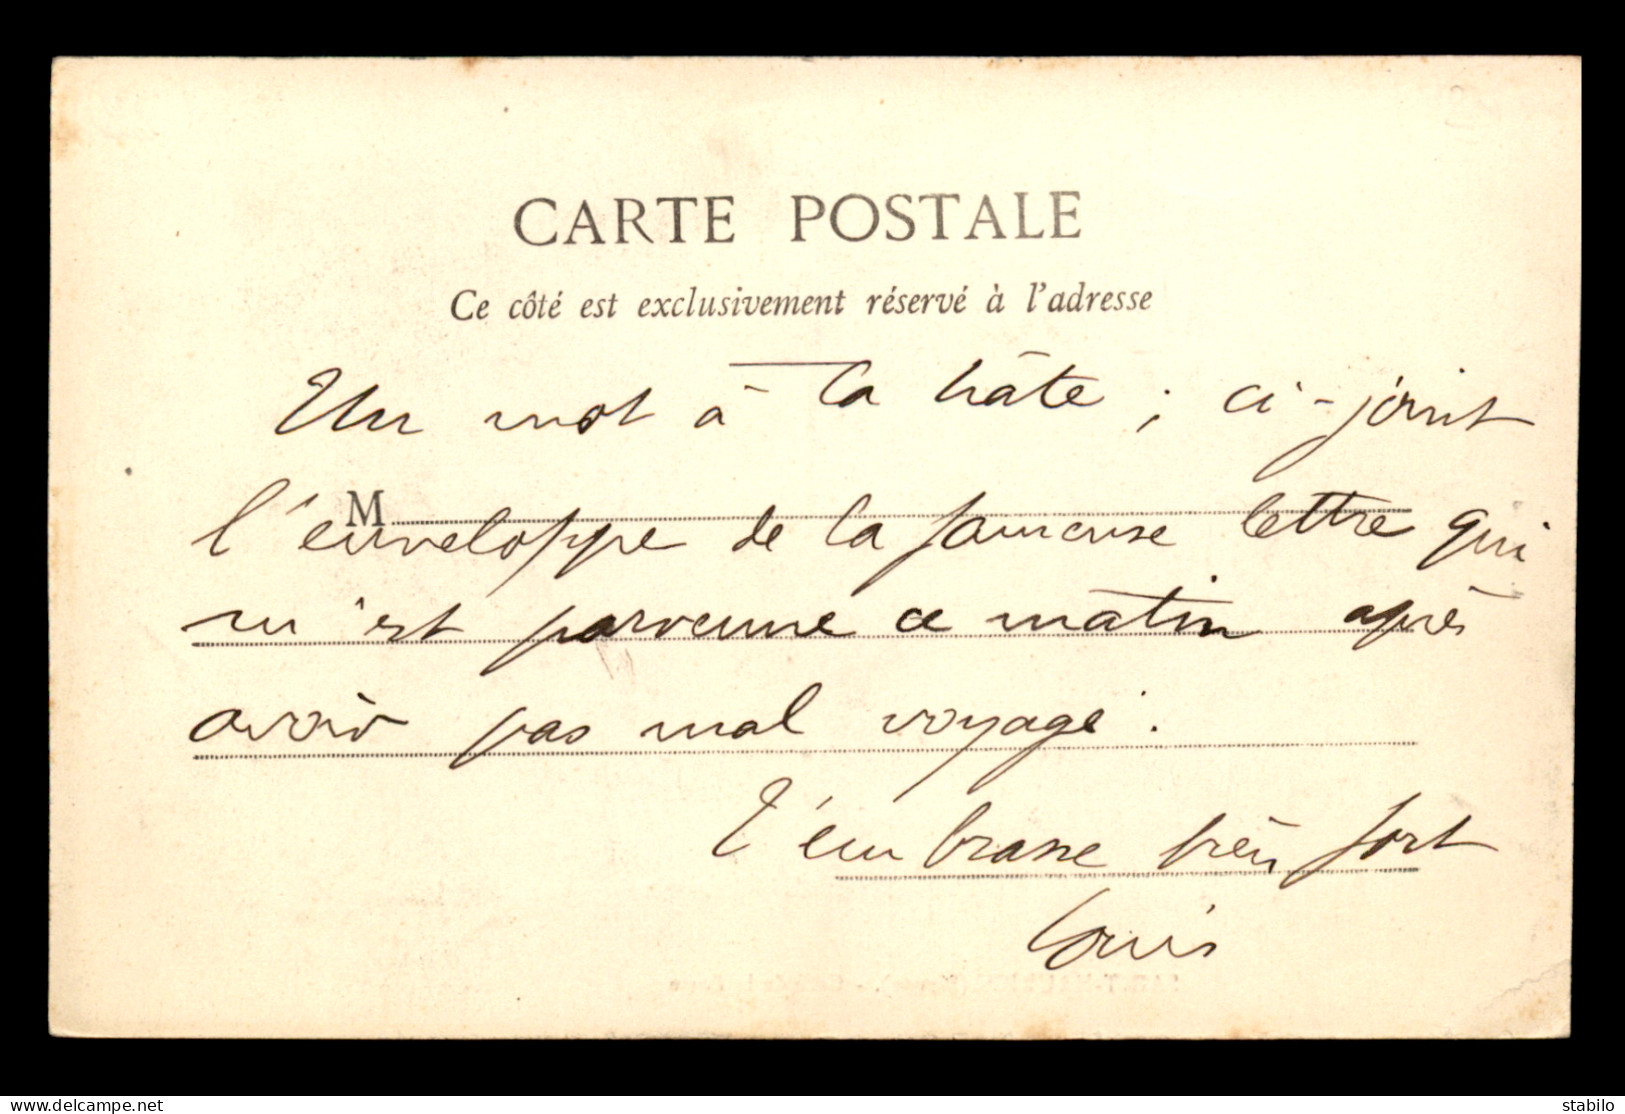 CARTE POSTALE
Ce côté est exclusivement réservé à l'adresse
Un mot à la hâte ; ci-joint
M
l'enveloppe de la fameuse lettre qui
m'est parvenue ce matin après
avoir pas mal voyagé.
T'embrasse bien fort
Louis
stabilo